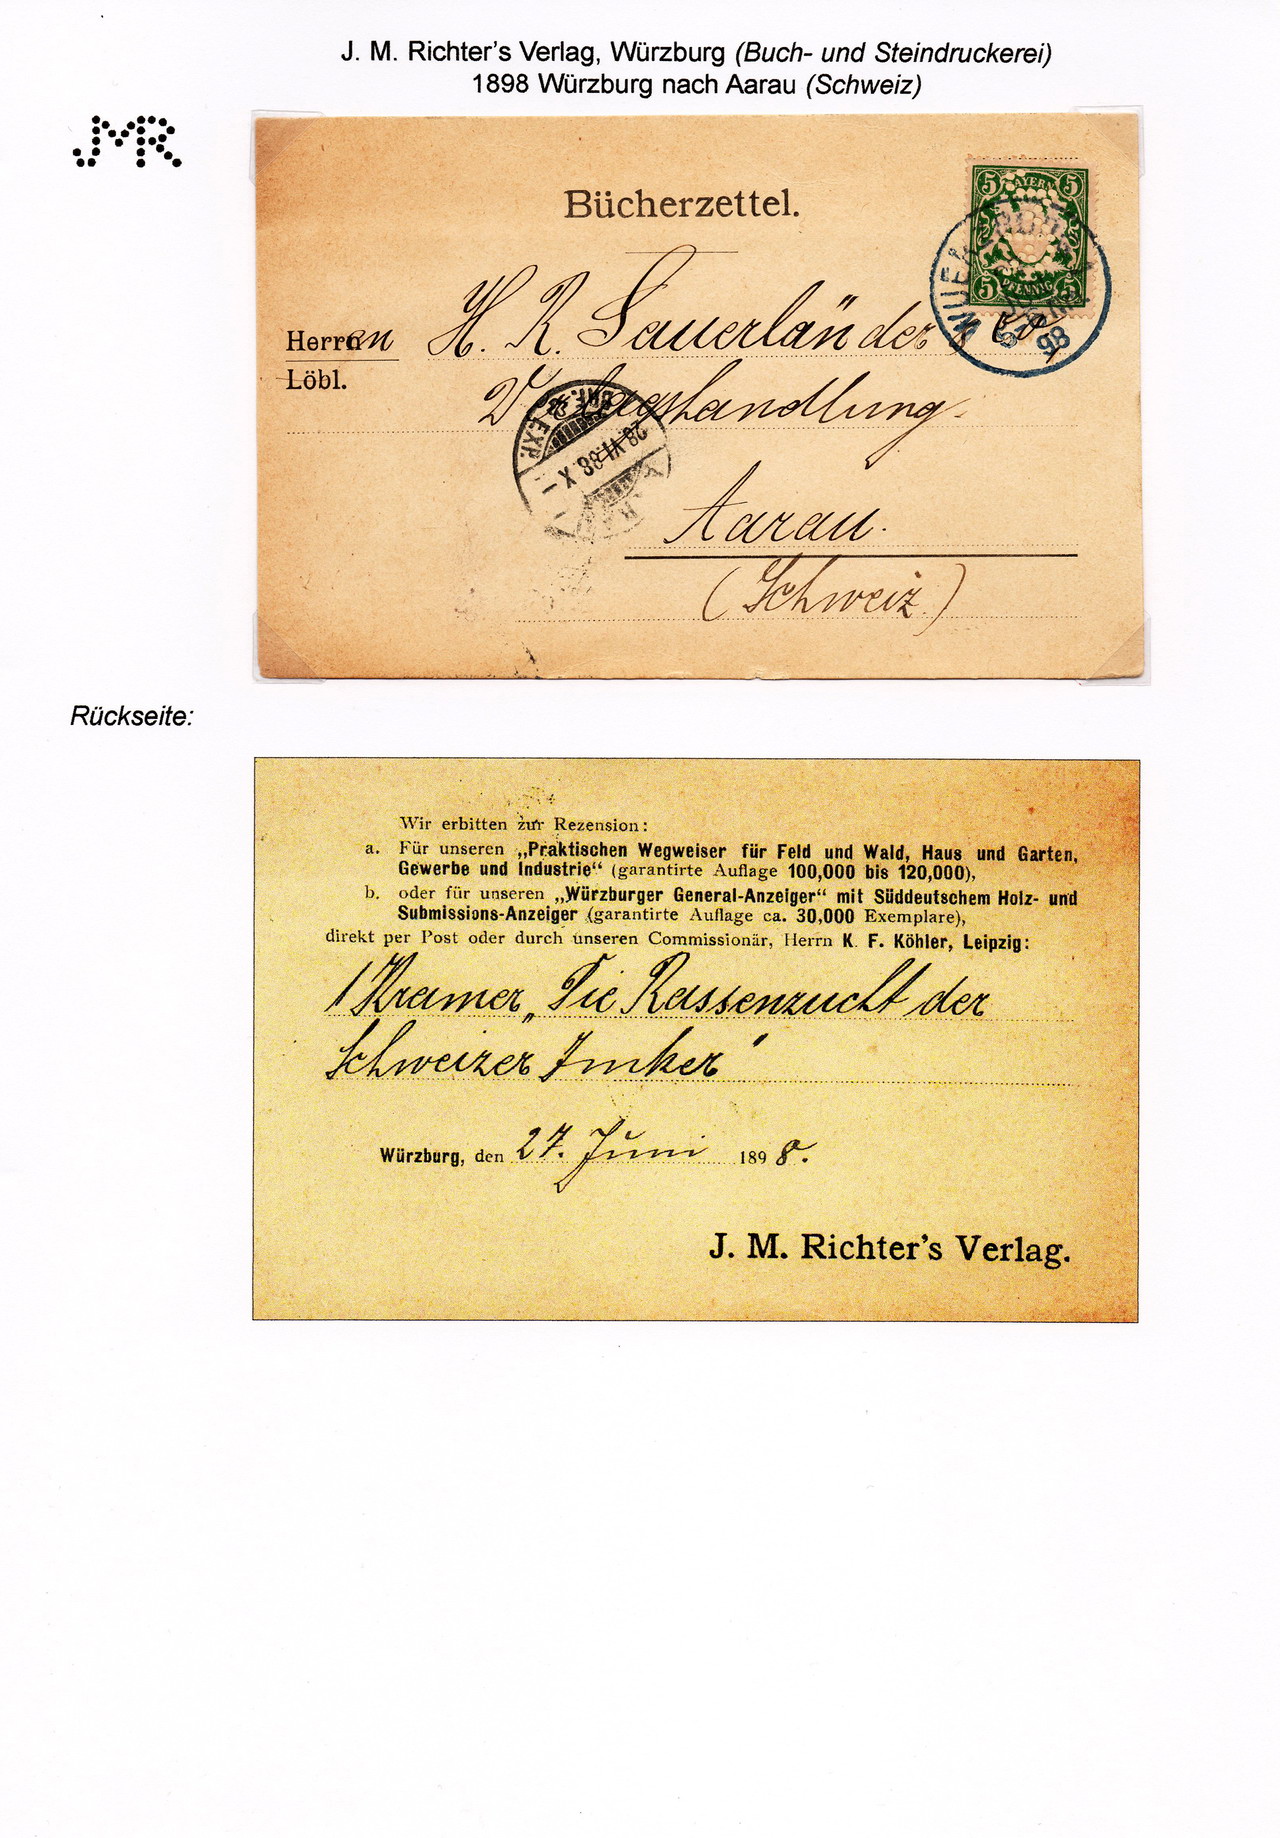 J. M. Richter's Verlag, Würzburg (Buch- und Steindruckerei)
1898 Würzburg nach Aarau (Schweiz)
JMR
Bücherzettel.
5 BAYERN 5
5 PFENNIG 5
98
Herren H. R. Sauerländer &
Löbl.
Verlagshandlung.
BRF. EXP.
28 VI 98 X
Aarau.
(Schweiz)
Rückseite:
Wir erbitten zur Rezension:
a. Für unseren „Praktischen Wegweiser für Feld und Wald, Haus und Garten,
Gewerbe und Industrie“ (garantirte Auflage 100,000 bis 120,000),
b. oder für unseren „Würzburger General-Anzeiger“ mit Süddeutschem Holz- und
Submissions-Anzeiger (garantirte Auflage ca. 30,000 Exemplare),
direkt per Post oder durch unseren Commissionär, Herrn K. F. Köhler, Leipzig:
1 Kramer „Die Rassenzucht der
Schweizer Imker"
Würzburg, den 27. Juni 1898.
J. M. Richter's Verlag.